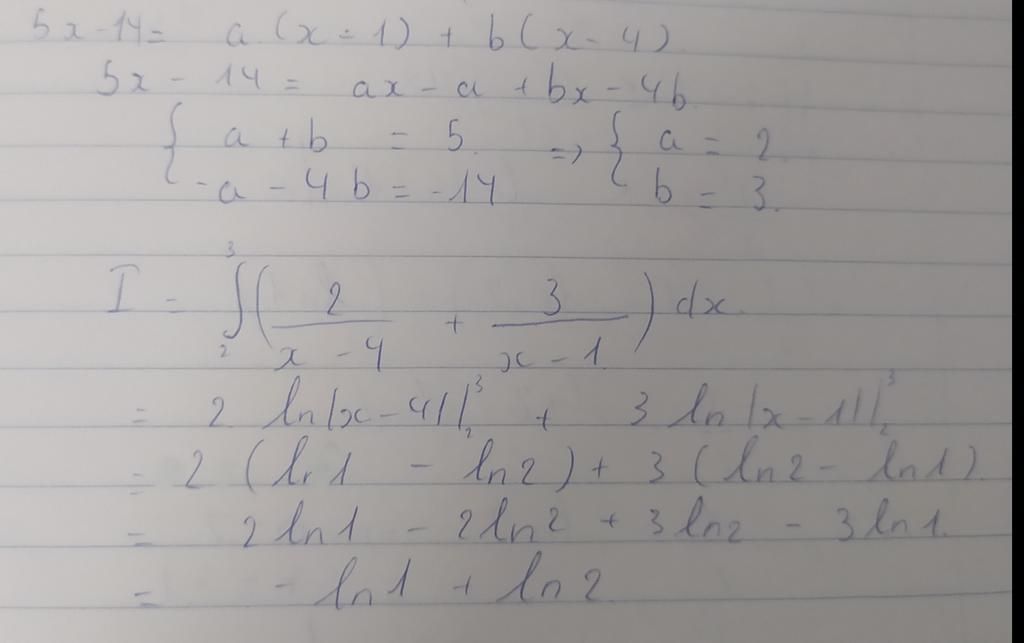 5x - 14 = a(x - 1) + b(x - 4)
5x - 14 = ax - a + bx - 4b
{ a + b = 5 => { a = 2
-a - 4b = -14 b = 3.
I = ∫₂³ ( 2/(x - 4) + 3/(x - 1) ) dx
= 2 ln|x - 4||₂³ + 3 ln|x - 1||₂³
= 2 (ln1 - ln2) + 3 (ln2 - ln1)
= 2ln1 - 2ln2 + 3ln2 - 3ln1.
= - ln1 + ln2